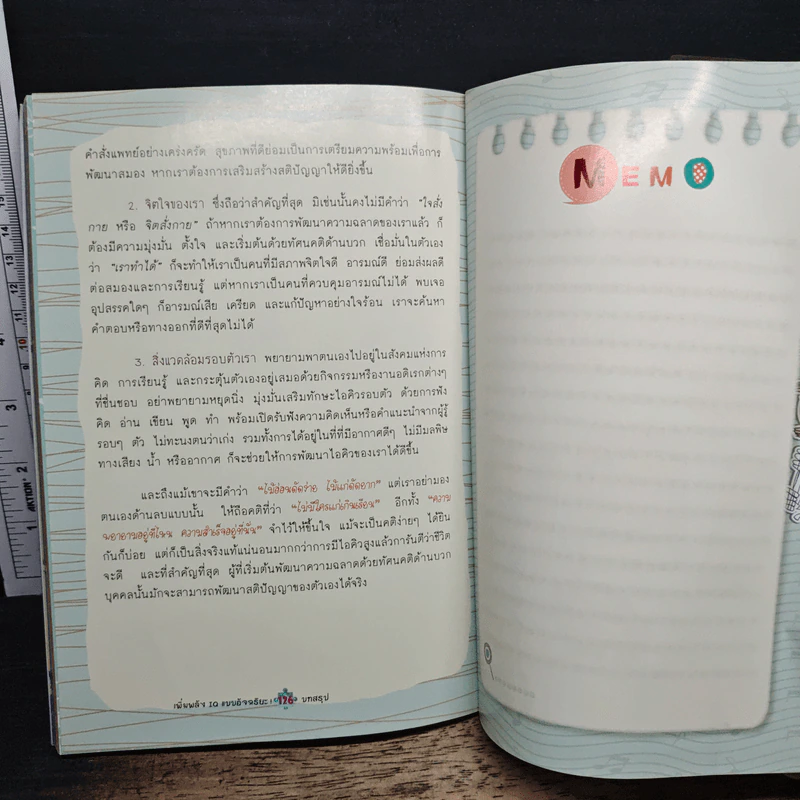 คำสั่งแพทย์อย่างเคร่งครัด สุขภาพที่ดีย่อมเป็นการเตรียมความพร้อมเพื่อการ
พัฒนาสมอง หากเราต้องการเสริมสร้างสติปัญญาให้ดียิ่งขึ้น
2. จิตใจของเรา ซึ่งถือว่าสำคัญที่สุด มิเช่นนั้นคงไม่มีคำว่า "ใจสั่ง
กาย หรือ จิตสั่งกาย" ถ้าหากเราต้องการพัฒนาความฉลาดของเราแล้ว ก็
ต้องมีความมุ่งมั่น ตั้งใจ และเริ่มต้นด้วยทัศนคติด้านบวก เชื่อมั่นในตัวเอง
ว่า "เราทำได้" ก็จะทำให้เราเป็นคนที่มีสภาพจิตใจดี อารมณ์ดี ย่อมส่งผลดี
ต่อสมองและการเรียนรู้ แต่หากเราเป็นคนที่ควบคุมอารมณ์ไม่ได้ พบเจอ
อุปสรรคใดๆ ก็อารมณ์เสีย เครียด และแก้ปัญหาอย่างใจร้อน เราจะค้นหา
คำตอบหรือทางออกที่ดีที่สุดไม่ได้
3. สิ่งแวดล้อมรอบตัวเรา พยายามพาตนเองไปอยู่ในสังคมแห่งการ
คิด การเรียนรู้ และกระตุ้นตัวเองอยู่เสมอด้วยกิจกรรมหรืองานอดิเรกต่างๆ
ที่ชื่นชอบ อย่าพยายามหยุดนิ่ง มุ่งมั่นเสริมทักษะไอคิวรอบตัว ด้วยการฟัง
คิด อ่าน เขียน พูด ทำ พร้อมเปิดรับฟังความคิดเห็นหรือคำแนะนำจากผู้รู้
รอบๆ ตัว ไม่ทะนงตนว่าเก่ง รวมทั้งการได้อยู่ในที่ที่มีอากาศดีๆ ไม่มีมลพิษ
ทางเสียง น้ำ หรืออากาศ ก็จะช่วยให้การพัฒนาไอคิวของเราได้ดีขึ้น
และถึงแม้เขาจะมีคำว่า "ไม้อ่อนดัดง่าย ไม้แก่ดัดยาก" แต่เราอย่ามอง
ตนเองด้านลบแบบนั้น ให้ถือคติที่ว่า "ไม่มีใครแก่เกินเรียน" อีกทั้ง "ความ
พยายามอยู่ที่ไหน ความสำเร็จอยู่ที่นั่น" จำไว้ให้ขึ้นใจ แม้จะเป็นคติง่ายๆ ได้ยิน
กันก็บ่อย แต่ก็เป็นสิ่งจริงแท้แน่นอนมากกว่าการมีไอคิวสูงแล้วการันตีว่าชีวิต
จะดี และที่สำคัญที่สุด ผู้ที่เริ่มต้นพัฒนาความฉลาดด้วยทัศนคติด้านบวก
บุคคลนั้นมักจะสามารถพัฒนาสติปัญญาของตัวเองได้จริง
เพิ่มพลัง IQ แบบอัจฉริยะ 126 บทสรุป
MEMO